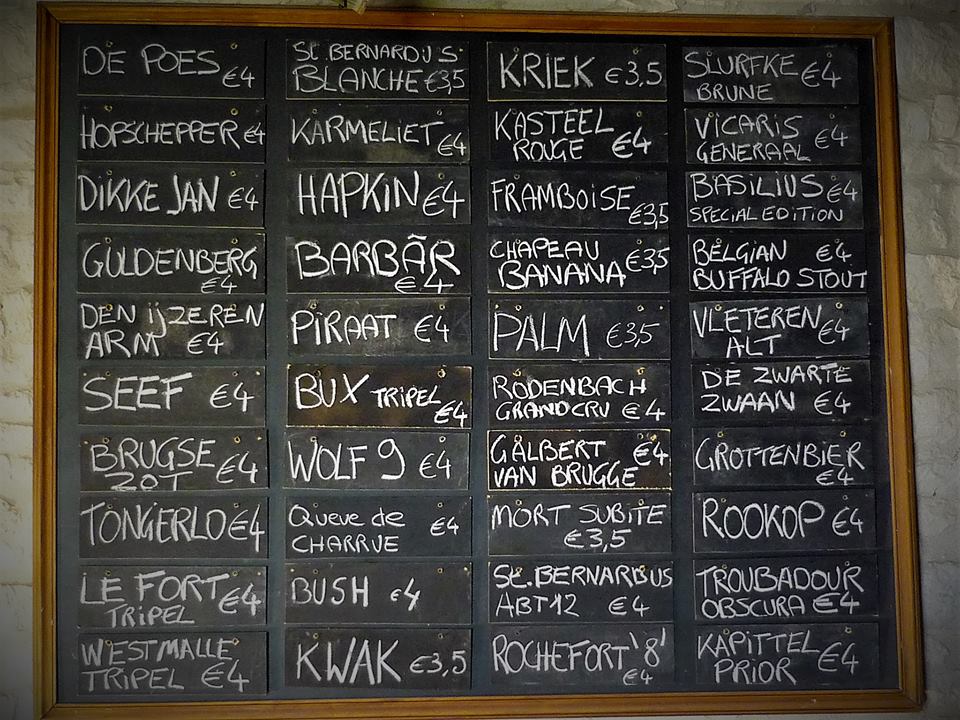 DE POES €4
HOPSCHEPPER €4
DIKKE JAN €4
GULDENBERG
€4
DEN IJZEREN
ARM €4
SEEF €4
BRUGSE
ZOT €4
TONGERLO €4
LE FORT
TRIPEL €4
WESTMALLE
TRIPEL €4
St. BERNARDUS
BLANCHE €3,5
KARMELIET €4
HAPKIN €4
BARBÃR
€4
PIRAAT €4
BUX TRIPEL
€4
WOLF 9 €4
Queue de
CHARRUE €4
BUSH €4
KWAK €3,5
KRIEK €3,5
KASTEEL
ROUGE €4
FRAMBOISE
€3,5
CHAPEAU
BANANA €3,5
PALM €3,5
RODENBACH
GRAND CRU €4
GALBERT €4
VAN BRUGGE
MORT SUBITE
€3,5
St. BERNARDUS
ABT 12 €4
ROCHEFORT '8'
€4
SLURFKE €4
BRUNE
VICARIS
GENERAAL €4
BASILIUS €4
SPECIAL EDITION
BELGIAN €4
BUFFALO STOUT
VLETEREN
ALT €4
DE ZWARTE
ZWAAN €4
GROTTENBIER
€4
ROOKOP €4
TROUBADOUR
OBSCURA €4
KAPITTEL
PRIOR €4